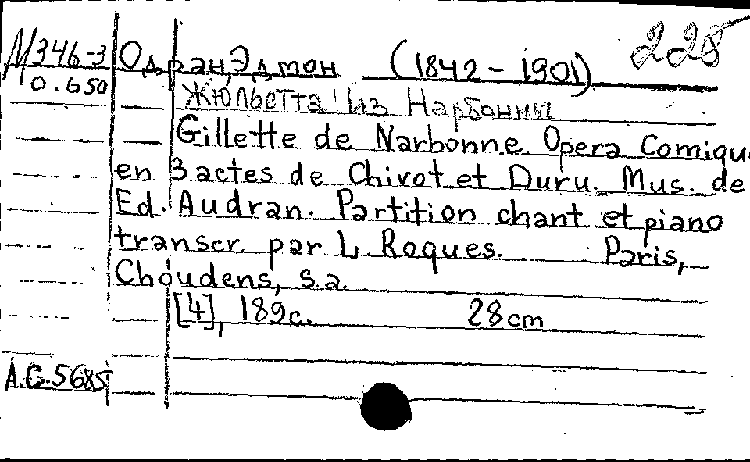 М346-3 Одран, Эдмон (1842-1901) 228
0.650 Жюльетта из Нарбонны
Gillette de Narbonne. Opera Comique
en 3 actes de Chivot et Duru. Mus. de
Ed. Audran. Partition chant et piano
transcr. par L. Roques. Paris,
Choudens, s.a.
[4], 189c. 28cm
A.G.5685